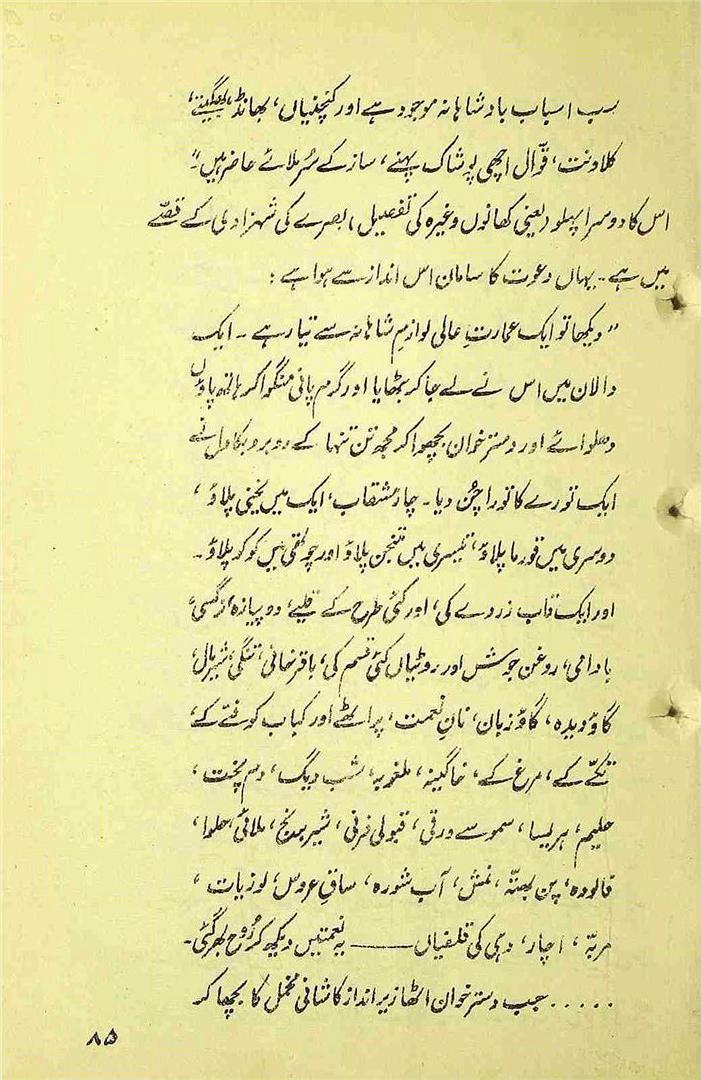 سب اسباب بادشاہانہ موجود ہے اور کنچنیاں، بھانڈ، بھگتیے،
کلاونت، قوّال اچھی پوشاک پہنے، ساز کے سُر ملائے حاضر ہیں"۔
اس کا دوسرا پہلو (یعنی کھانوں وغیرہ کی تفصیل) بصرے کی شہزادی کے قصّے
میں ہے۔ یہاں دعوت کا سامان اس انداز سے ہوا ہے :
" دیکھا تو ایک عمارتِ عالی لوازمِ شاہانہ سے تیار ہے۔ ایک
دالان میں اس نے لے جا کر بٹھایا اور گرم پانی منگوا کر ہاتھ پاؤں
دھلوائے اور دسترخوان بچھوا کر مجھ تن تنہا کے روبرو بکاول نے
ایک تورے کا تورا چُن دیا۔ چار مشقاب، ایک میں یخنی پلاؤ،
دوسری میں قورما پلاؤ، تیسری میں متنجن پلاؤ اور چوتھی میں کوکو پلاؤ۔
اور ایک قاب زردے کی، اور کئی طرح کے قلیے، دوپیازہ، نرگسی،
بادامی، روغن جوش اور روٹیاں کئی قسم کی، باقرخانی، تنکی، شیرمال،
گاؤدیدہ، گاؤزبان، نانِ نعمت، پراٹھے اور کباب کوفتے کے،
تکّے کے، مرغ کے، خاگینہ، ملغوبہ، شب دیگ، دم پخت،
حلیم، ہریسا، سموسے ورقی، قبولی فرنی، شیربرنج، ملائی، حلوا،
فالودہ، پن بھتّہ، نمش، آب شورہ، ساقِ عروس، لوزیات،
مربّہ، اچار، دہی کی قلفیاں ——— یہ نعمتیں دیکھ کر رُوح بھر گئی۔
..... جب دسترخوان اٹھا زیر انداز کاشانی مخمل کا بچھا کر
۸۵